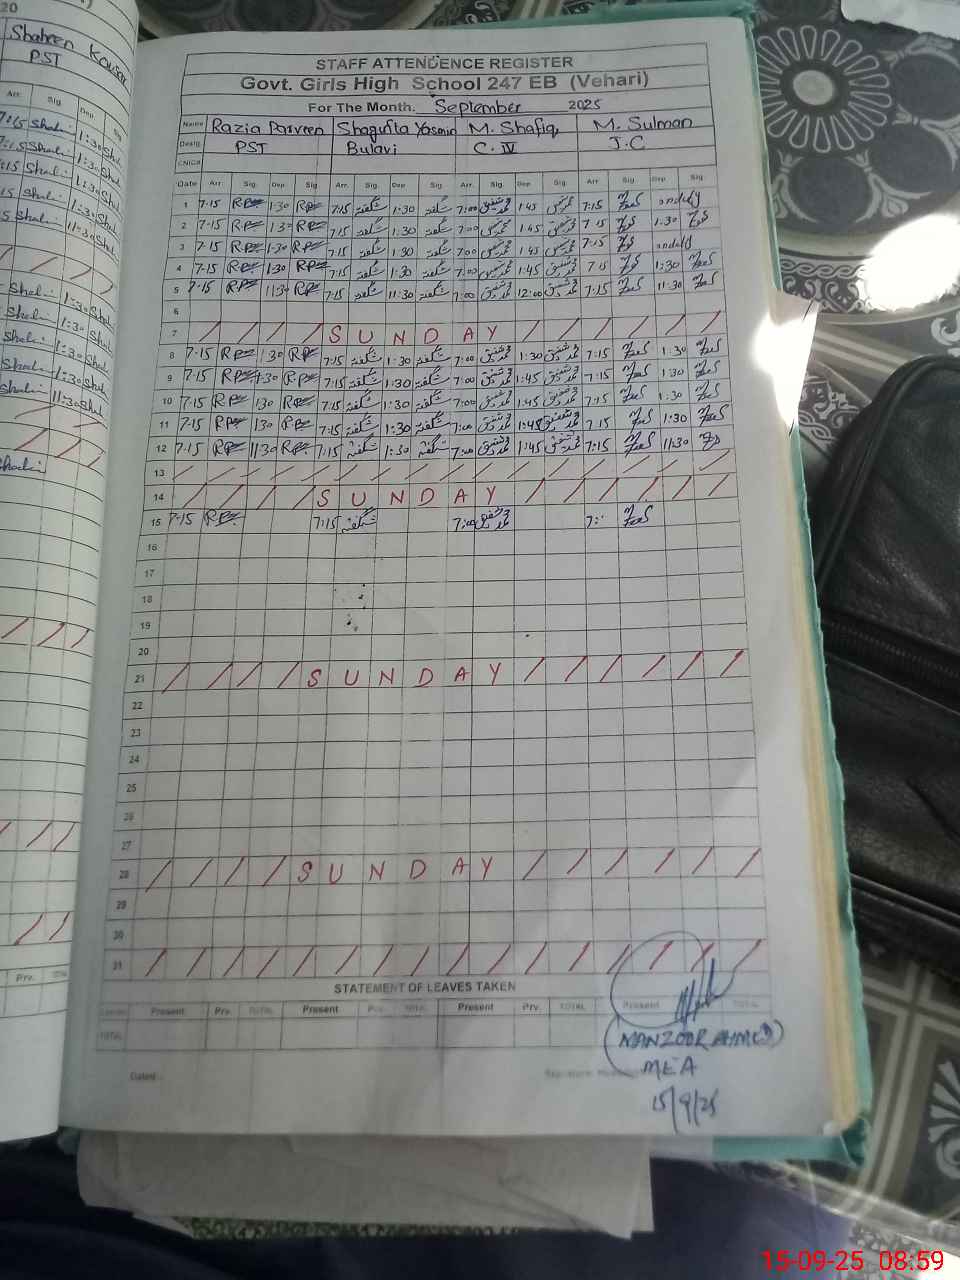 20
Shaheen Kousar
PST
Arr. Sig. Dep. Sig.
STAFF ATTENDENCE REGISTER
Govt. Girls High School 247 EB (Vehari)
For The Month. September 2025
Name Razia Parveen Shagufta Yasmin M. Shafiq M. Sulman
Desig. PST Bulavi C. IV J.C
CNIC#
Date Arr. Sig. Dep. Sig. Arr. Sig. Dep. Sig. Arr. Sig. Dep. Sig. Arr. Sig. Dep. Sig.
1 7:15 RP 1:30 RP 7:15 شگفتہ 1:30 شگفتہ 7:00 محمد شفیق 1:45 محمد شفیق 7:15
2 7:15 RP 1:30 RP 7:15 شگفتہ 1:30 شگفتہ 7:00 محمد شفیق 1:45 محمد شفیق 7:15 1:30
3 7:15 RP 1:30 RP 7:15 شگفتہ 1:30 شگفتہ 7:00 محمد شفیق 1:45 محمد شفیق 7:15
4 7:15 RP 1:30 RP 7:15 شگفتہ 1:30 شگفتہ 7:00 محمد شفیق 1:45 محمد شفیق 7:15 1:30
5 7:15 RP 11:30 RP 7:15 شگفتہ 11:30 شگفتہ 7:00 محمد شفیق 12:00 محمد شفیق 7:15 11:30
6
7 SUNDAY
8 7:15 RP 1:30 RP 7:15 شگفتہ 1:30 شگفتہ 7:00 محمد شفیق 1:30 محمد شفیق 7:15 1:30
9 7:15 RP 1:30 RP 7:15 شگفتہ 1:30 شگفتہ 7:00 محمد شفیق 1:45 محمد شفیق 7:15 1:30
10 7:15 RP 1:30 RP 7:15 شگفتہ 1:30 شگفتہ 7:00 محمد شفیق 1:45 محمد شفیق 7:15 1:30
11 7:15 RP 1:30 RP 7:15 شگفتہ 1:30 شگفتہ 7:00 محمد شفیق 1:45 محمد شفیق 7:15 1:30
12 7:15 RP 11:30 RP 7:15 شگفتہ 1:30 شگفتہ 7:00 محمد شفیق 1:45 محمد شفیق 7:15 11:30
13
14 SUNDAY
15 7:15 RP 7:15 شگفتہ 7:00 محمد شفیق
16
17
18
19
20
21 SUNDAY
22
23
24
25
26
27
28 SUNDAY
29
30
31
STATEMENT OF LEAVES TAKEN
Leaves Present Prv. TOTAL Present Prv. TOTAL Present Prv. TOTAL Present TOTAL
TOTAL
Dated :
(MANZOOR AHMED)
MEA
15/9/25
Prv. TOTAL
15-09-25 08:59